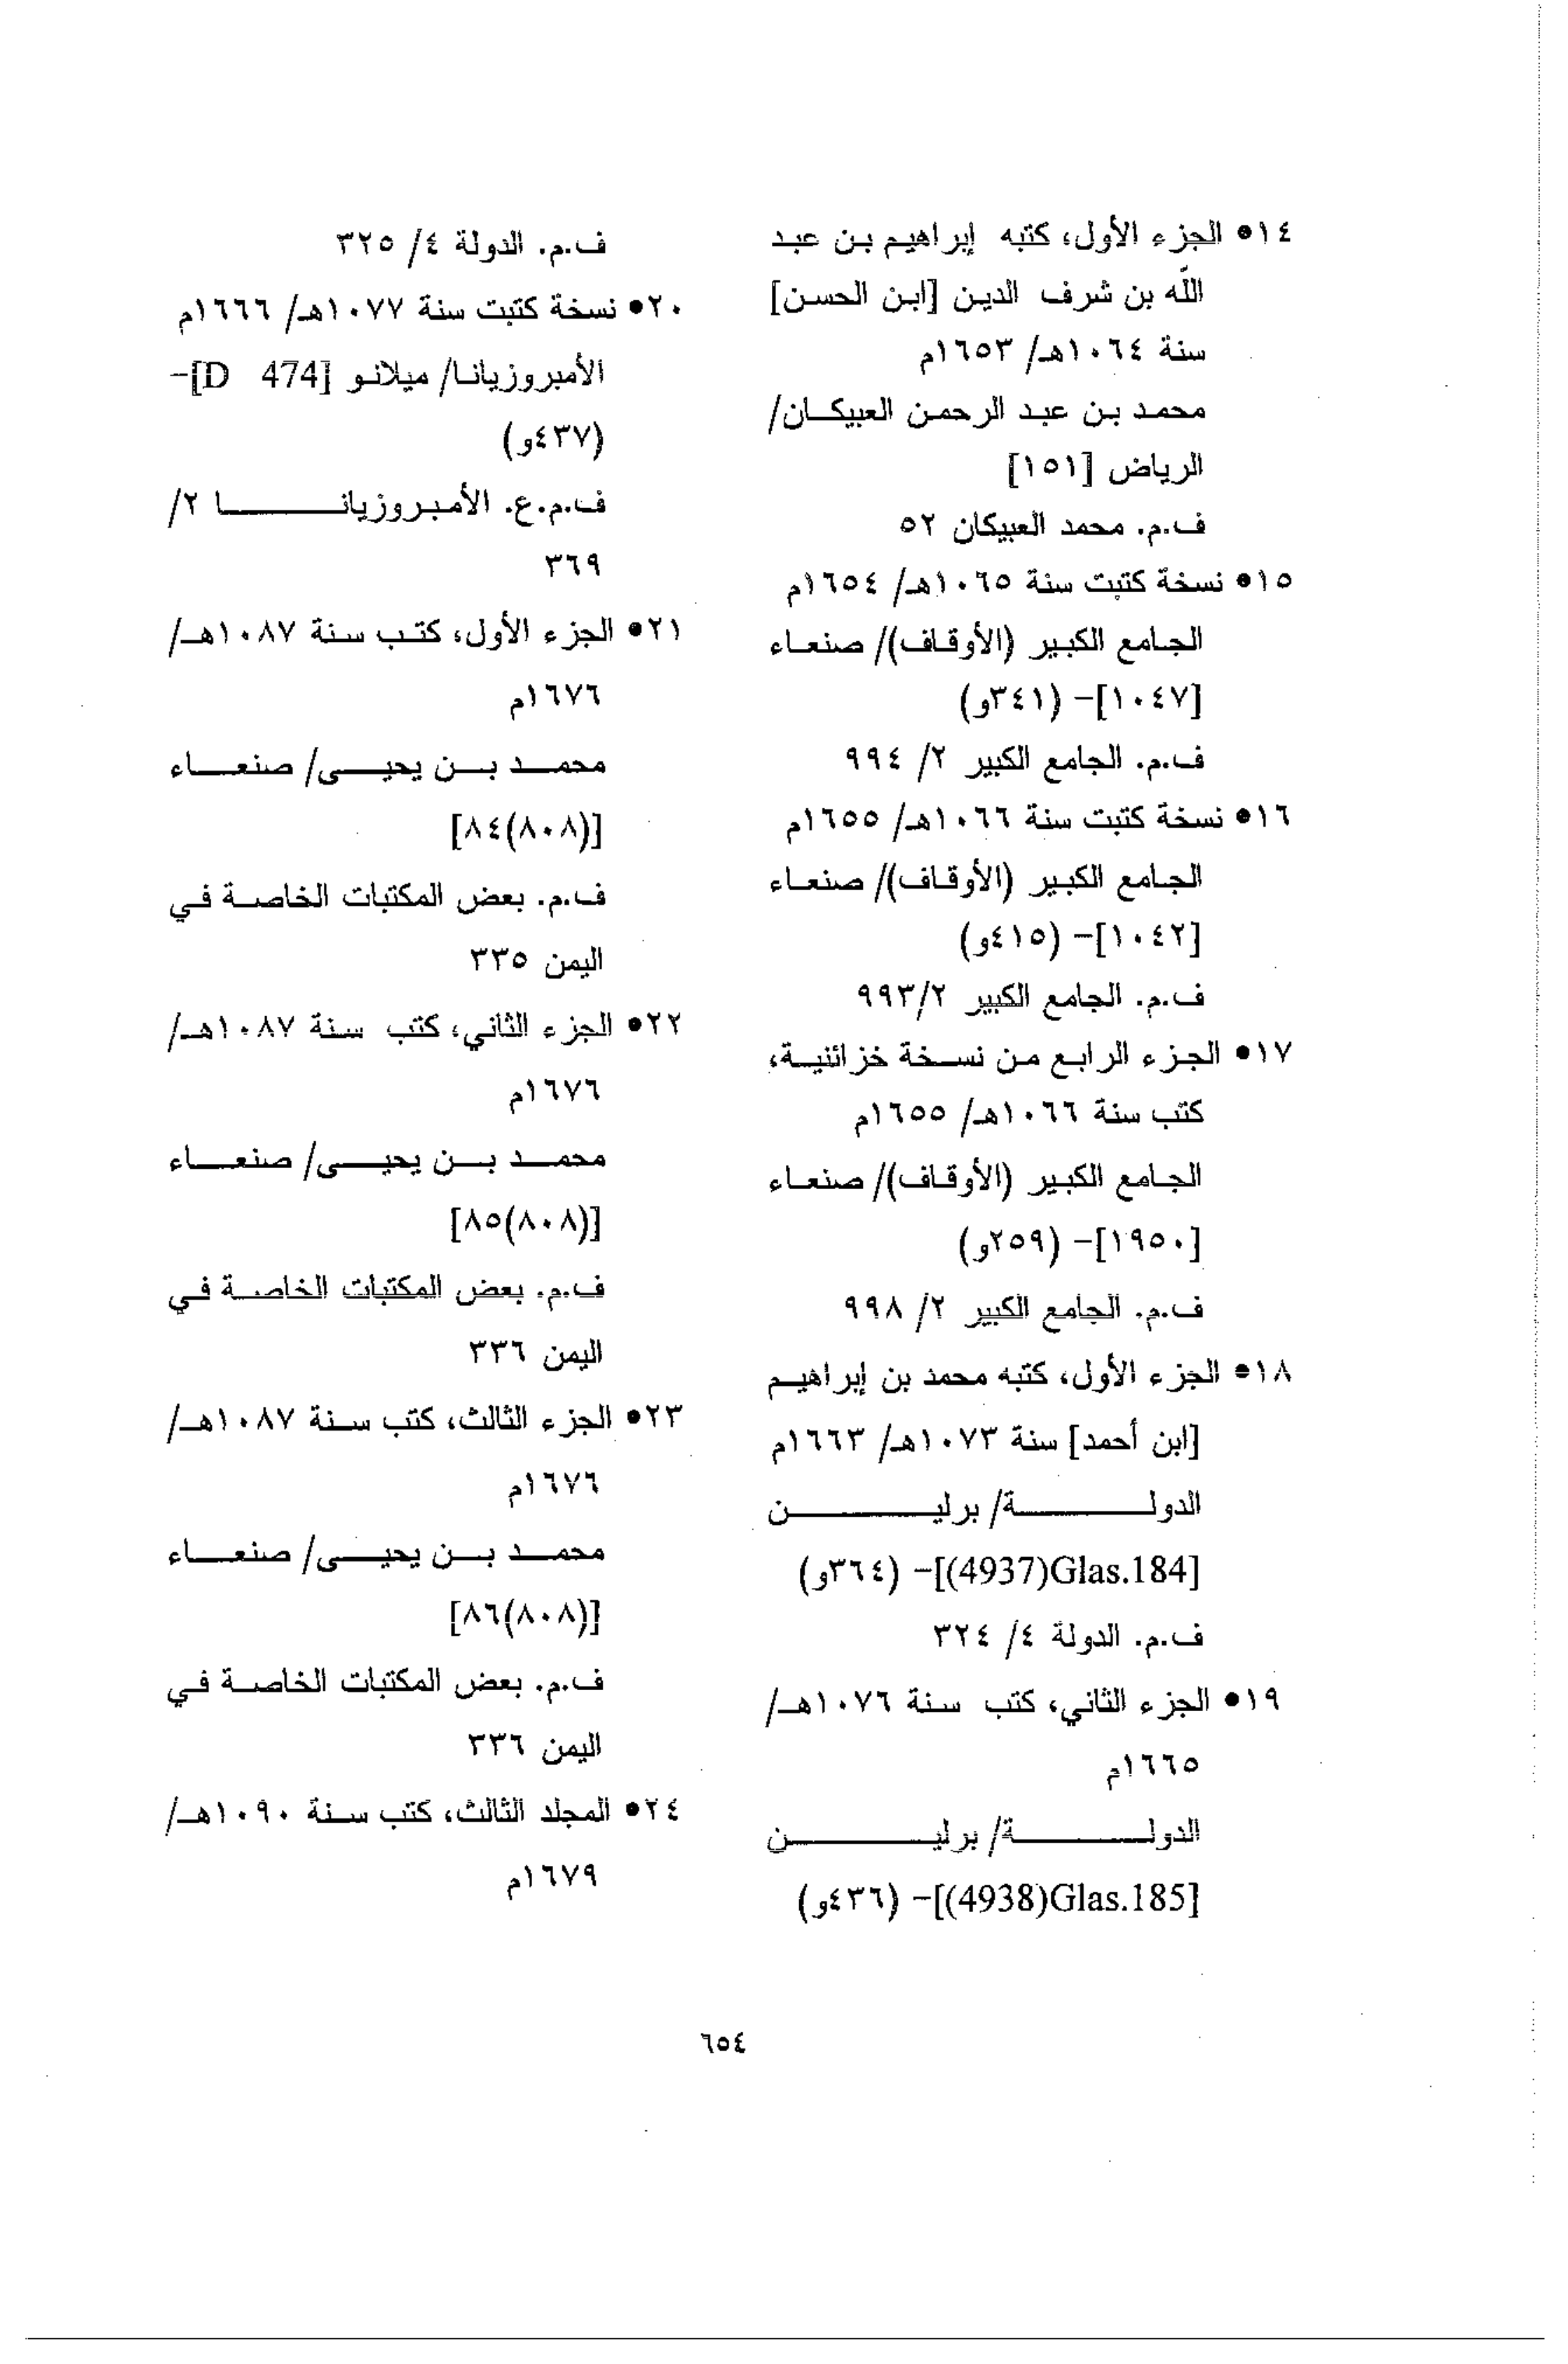 ١٤● الجزء الأول، كتبه إبراهيم بن عبد
اللّه بن شرف الدين [ابن الحسن]
سنة ١٠٦٤هـ/ ١٦٥٣م
محمد بن عبد الرحمن العبيكان/
الرياض [١٥١]
ف.م. محمد العبيكان ٥٢
١٥● نسخة كتبت سنة ١٠٦٥هـ/ ١٦٥٤م
الجامع الكبير (الأوقاف)/ صنعاء
[١٠٤٧]- (٣٤١و)
ف.م. الجامع الكبير ٢/ ٩٩٤
١٦● نسخة كتبت سنة ١٠٦٦هـ/ ١٦٥٥م
الجامع الكبير (الأوقاف)/ صنعاء
[١٠٤٢]- (٤١٥و)
ف.م. الجامع الكبير ٢/٩٩٣
١٧● الجزء الرابع من نسخة خزائنية،
كتب سنة ١٠٦٦هـ/ ١٦٥٥م
الجامع الكبير (الأوقاف)/ صنعاء
[١٩٥٠]- (٢٥٩و)
ف.م. الجامع الكبير ٢/ ٩٩٨
١٨● الجزء الأول، كتبه محمد بن إبراهيم
[ابن أحمد] سنة ١٠٧٣هـ/ ١٦٦٣م
الدولة/ برلين
[(4937)Glas.184]- (٣٦٤و)
ف.م. الدولة ٤/ ٣٢٤
١٩● الجزء الثاني، كتب سنة ١٠٧٦هـ/
١٦٦٥م
الدولة/ برلين
[(4938)Glas.185]- (٤٣٦و)
ف.م. الدولة ٤/ ٣٢٥
٢٠● نسخة كتبت سنة ١٠٧٧هـ/ ١٦٦٦م
الأمبروزيانا/ ميلانو [D 474]-
(٤٣٧و)
ف.م.ع. الأمبروزيانا ٢/
٣٦٩
٢١● الجزء الأول، كتب سنة ١٠٨٧هـ/
١٦٧٦م
محمد بن يحيى/ صنعاء
[(٨٠٨)٨٤]
ف.م. بعض المكتبات الخاصة في
اليمن ٣٣٥
٢٢● الجزء الثاني، كتب سنة ١٠٨٧هـ/
١٦٧٦م
محمد بن يحيى/ صنعاء
[(٨٠٨)٨٥]
ف.م. بعض المكتبات الخاصة في
اليمن ٣٣٦
٢٣● الجزء الثالث، كتب سنة ١٠٨٧هـ/
١٦٧٦م
محمد بن يحيى/ صنعاء
[(٨٠٨)٨٦]
ف.م. بعض المكتبات الخاصة في
اليمن ٣٣٦
٢٤● المجلد الثالث، كتب سنة ١٠٩٠هـ/
١٦٧٩م
٦٥٤